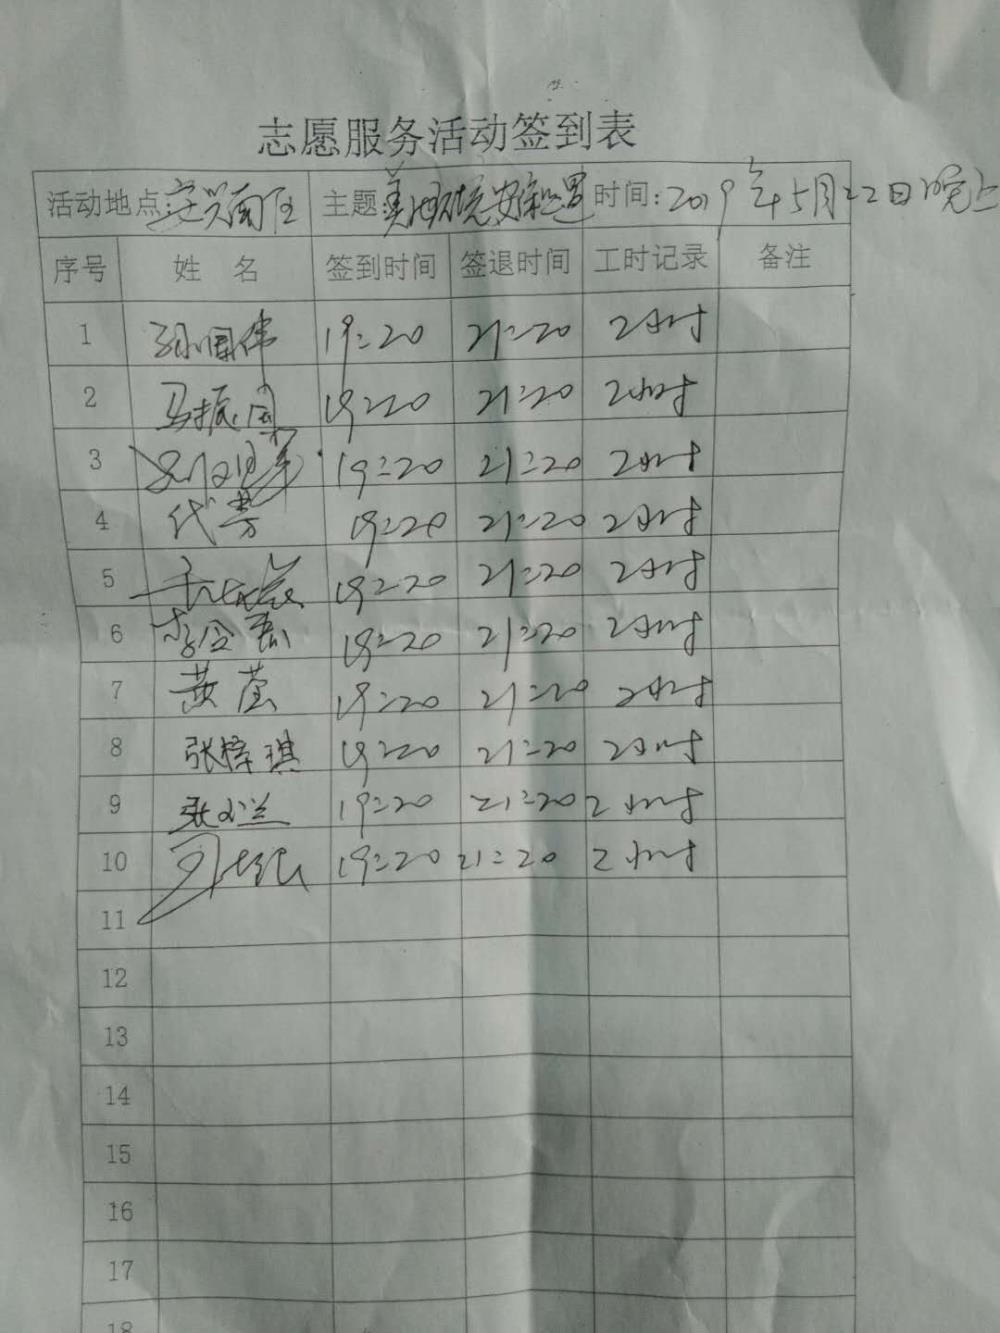 志愿服务活动签到表
活动地点 主题 时间:2019年5月22日晚上
序号 姓 名 签到时间 签退时间 工时记录 备注
1 孙国伟 19:20 21:20 2小时
2 马振国 19:20 21:20 2小时
3 19:20 21:20 2小时
4 代芳 19:20 21:20 2小时
5 19:20 21:20 2小时
6 19:20 21:20 2小时
7 黄莹 19:20 21:20 2小时
8 张梓琪 19:20 21:20 2小时
9 张小兰 19:20 21:20 2小时
10 19:20 21:20 2小时
11
12
13
14
15
16
17
18